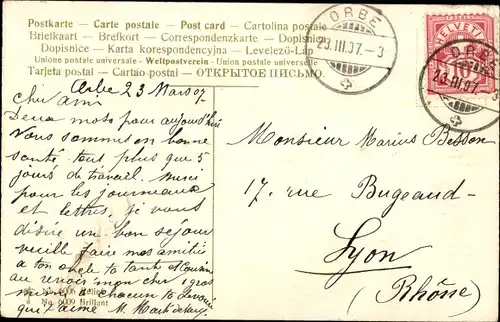 Postkarte – Carte postale – Post card – Cartolina postale
Brielkaart – Brefkort – Correspondenzkarte – Dopisnice
Dopisnice – Karta korespondencyjna – Levelező-Láp
Unione postale universale – Weltpostverein – Union postale universelle
Tarjeta postal – Cartao postal – ОТКРЫТОЕ ПИСЬМО.
ORBE
23.III.07.–3
HELVETIA
ORBE
23.III.07.–3
10
Orbe 23 Mars 07.
Cher ami
Deux mots pour aujourd'hui
Nous sommes en bonne
santé tout plus que 5
jours de travail. Merci
pour les journeaux
et lettres. je vous
désire un bon sejour
veuille faire mes amitiés
a ton oncle ta tante et Cousin
au revoir mon cher 1 gros
a chacun
qui t'aime M.
No. 6009 Brillant
Monsieur Marius Besson
17. rue Bugeaud –
Lyon
(Rhône)